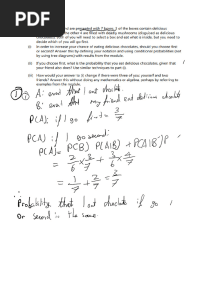 PDF
are presented with 7 boxes, 3 of the boxes contain delicious
the other 4 are filled with deadly mushrooms disguised as delicious
you will need to select a box and eat what is inside, but you need to
decide which of you will go first.
i) In order to increase your chance of eating delicious chocolate, should you choose first
or second? Answer this by defining your notation and using conditional probabilities (not
by using tree diagrams) with results from the module.
ii) If you choose first, what is the probability that you eat delicious chocolate, given that
your friend also does? Use similar techniques to part i).
iii) How would your answer to i) change if there were three of you: yourself and two
friends? Answer this without doing any mathematics or algebra, perhaps by referring to
examples from the module.
A: event that I eat chocolate
B: event that my friend eat chocolate
P(A): if I go first = 3/7
P(A): if I go second:
P(A) = P(B) P(A|B) + P(A|B')P
= 2/6 × 3/7 + 3/6 × 4/7
= 1/7 + 2/7 = 3/7
Probability that I eat chocolate if go
or second is the same.